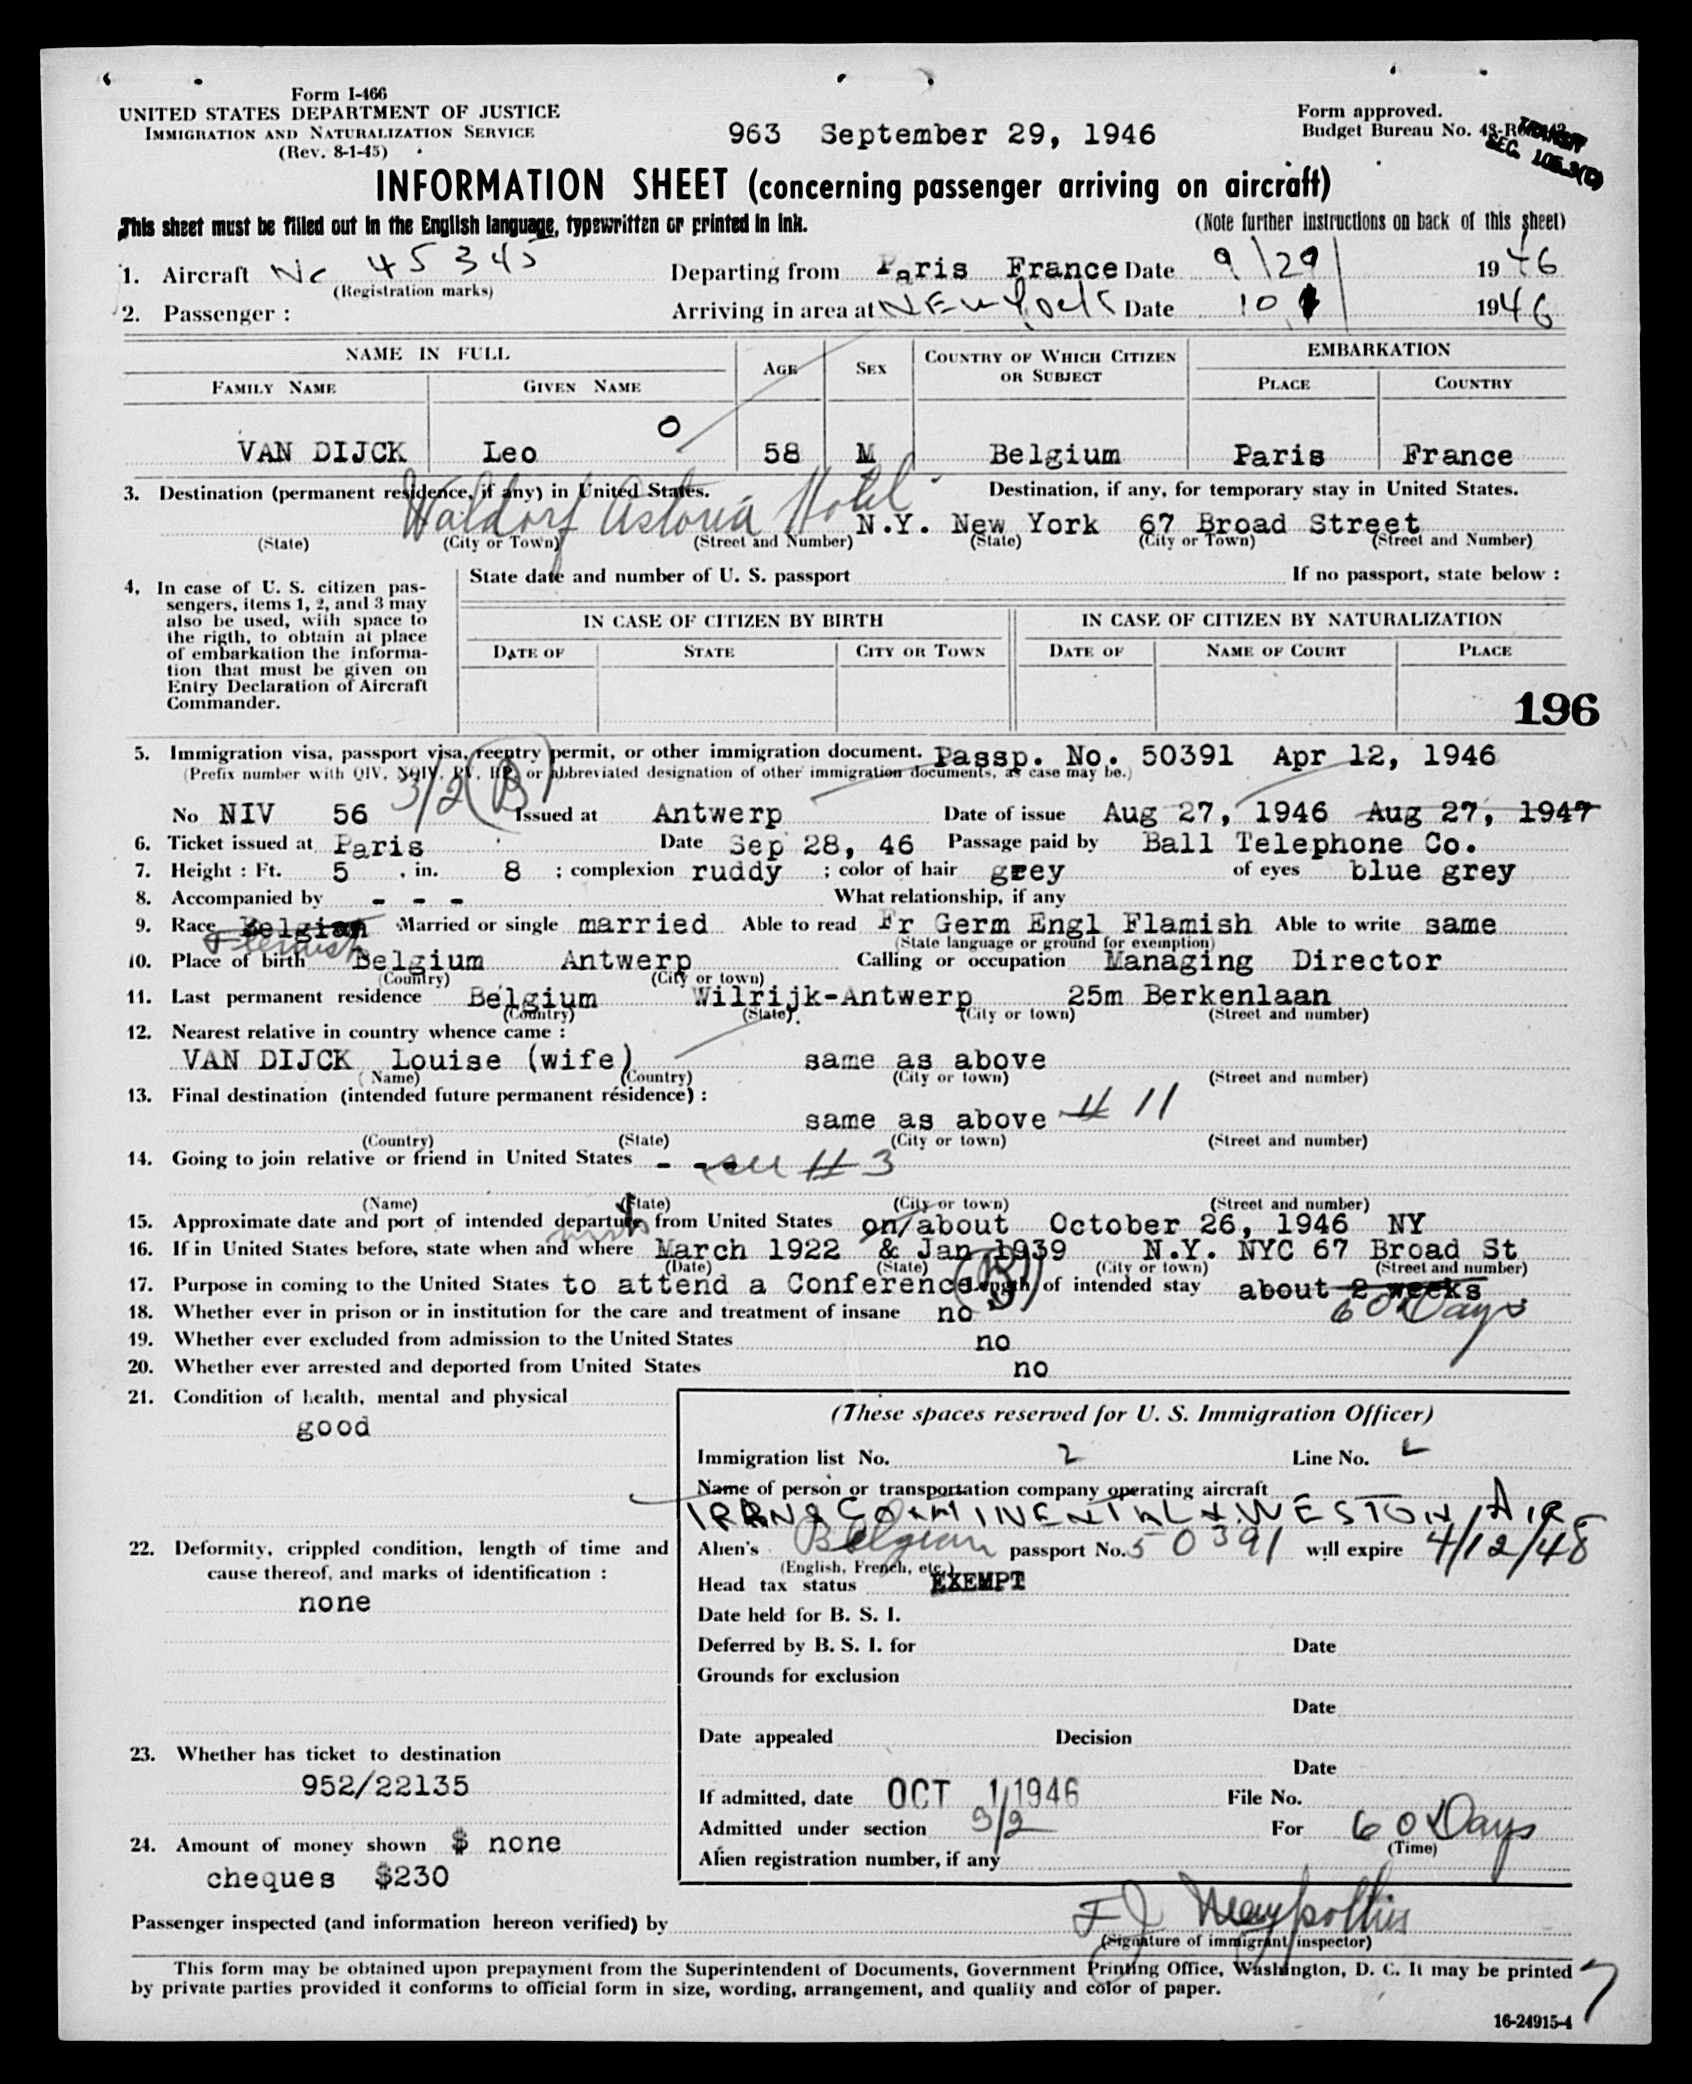 Form I-466
UNITED STATES DEPARTMENT OF JUSTICE
IMMIGRATION AND NATURALIZATION SERVICE
(Rev. 8-1-45)
963 September 29, 1946
Form approved.
Budget Bureau No.
TRANSIT
SEC. 105.3(C)
INFORMATION SHEET (concerning passenger arriving on aircraft)
This sheet must be filled out in the English language, typewritten or printed in ink. (Note further instructions on back of this sheet)
1. Aircraft Nc 45345 Departing from Paris France Date 9/29/ 1946
(Registration marks)
2. Passenger : Arriving in area at NEW York Date 10 1 1946
NAME IN FULL AGE SEX COUNTRY OF WHICH CITIZEN OR SUBJECT EMBARKATION
FAMILY NAME GIVEN NAME PLACE COUNTRY
O
VAN DIJCK Leo 58 M Belgium Paris France
3. Destination (permanent residence, if any) in United States. Destination, if any, for temporary stay in United States.
Waldorf Astoria Hotel N.Y. New York 67 Broad Street
(State) (City or Town) (Street and Number) (State) (City or Town) (Street and Number)
4. In case of U. S. citizen pas-
sengers, items 1, 2, and 3 may
also be used, with space to
the rigth, to obtain at place
of embarkation the informa-
tion that must be given on
Entry Declaration of Aircraft
Commander.
State date and number of U. S. passport If no passport, state below :
IN CASE OF CITIZEN BY BIRTH IN CASE OF CITIZEN BY NATURALIZATION
DATE OF STATE CITY OR TOWN DATE OF NAME OF COURT PLACE
196
5. Immigration visa, passport visa, reentry permit, or other immigration document. Passp. No. 50391 Apr 12, 1946
(Prefix number with QIV, NQIV, PV, RP, or abbreviated designation of other immigration documents, as case may be.)
3/2 (B)
No NIV 56 Issued at Antwerp Date of issue Aug 27, 1946 Aug 27, 1947
6. Ticket issued at Paris Date Sep 28, 46 Passage paid by Ball Telephone Co.
7. Height : Ft. 5 , in. 8 ; complexion ruddy ; color of hair grey of eyes blue grey
8. Accompanied by - - - What relationship, if any
9. Race Belgian Married or single married Able to read Fr Germ Engl Flamish Able to write same
Flemish (State language or ground for exemption)
10. Place of birth Belgium Antwerp Calling or occupation Managing Director
(Country) (City or town)
11. Last permanent residence Belgium Wilrijk-Antwerp 25m Berkenlaan
(Country) (State) (City or town) (Street and number)
12. Nearest relative in country whence came :
VAN DIJCK Louise (wife) same as above
(Name) (Country) (City or town) (Street and number)
13. Final destination (intended future permanent résidence) :
same as above # 11
(Country) (State) (City or town) (Street and number)
14. Going to join relative or friend in United States - - - see # 3
(Name) (State) (City or town) (Street and number)
15. Approximate date and port of intended departure from United States on/about October 26, 1946 NY
16. If in United States before, state when and where March 1922 & Jan 1939 N.Y. NYC 67 Broad St
(Date) (State) (City or town) (Street and number)
17. Purpose in coming to the United States to attend a Conference (B) Length of intended stay about 2 weeks
60 Days
18. Whether ever in prison or in institution for the care and treatment of insane no
19. Whether ever excluded from admission to the United States no
20. Whether ever arrested and deported from United States no
21. Condition of health, mental and physical
good
22. Deformity, crippled condition, length of time and
cause thereof, and marks of identification :
none
23. Whether has ticket to destination
952/22135
24. Amount of money shown $ none
cheques $230
(These spaces reserved for U. S. Immigration Officer)
Immigration list No. 2 Line No.
Name of person or transportation company operating aircraft
TRANSCONTINENTAL & WESTON AIR
Alien's Belgian passport No. 50391 will expire 4/12/48
(English, French, etc.)
Head tax status EXEMPT
Date held for B. S. I.
Deferred by B. S. I. for Date
Grounds for exclusion
Date
Date appealed Decision
Date
If admitted, date OCT 1 1946 File No.
Admitted under section 3/2 For 60 Days
(Time)
Alien registration number, if any
Passenger inspected (and information hereon verified) by
(Signature of immigrant inspector)
This form may be obtained upon prepayment from the Superintendent of Documents, Government Printing Office, Washington, D. C. It may be printed
by private parties provided it conforms to official form in size, wording, arrangement, and quality and color of paper.
16-24915-4